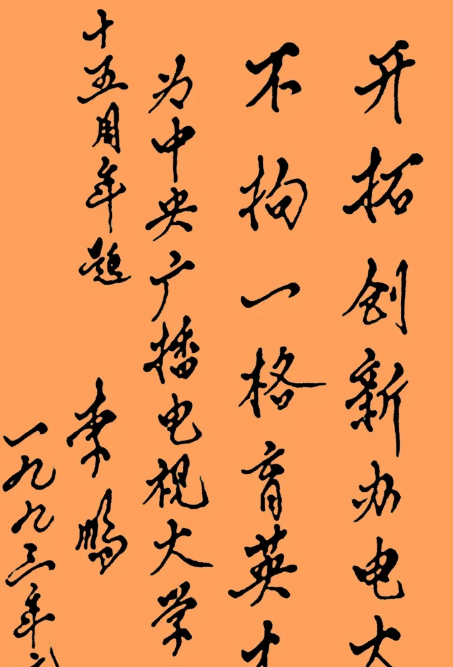 开拓创新办电大
不拘一格育英才
为中央广播电视大学
十五周年题
李鹏
一九九三年